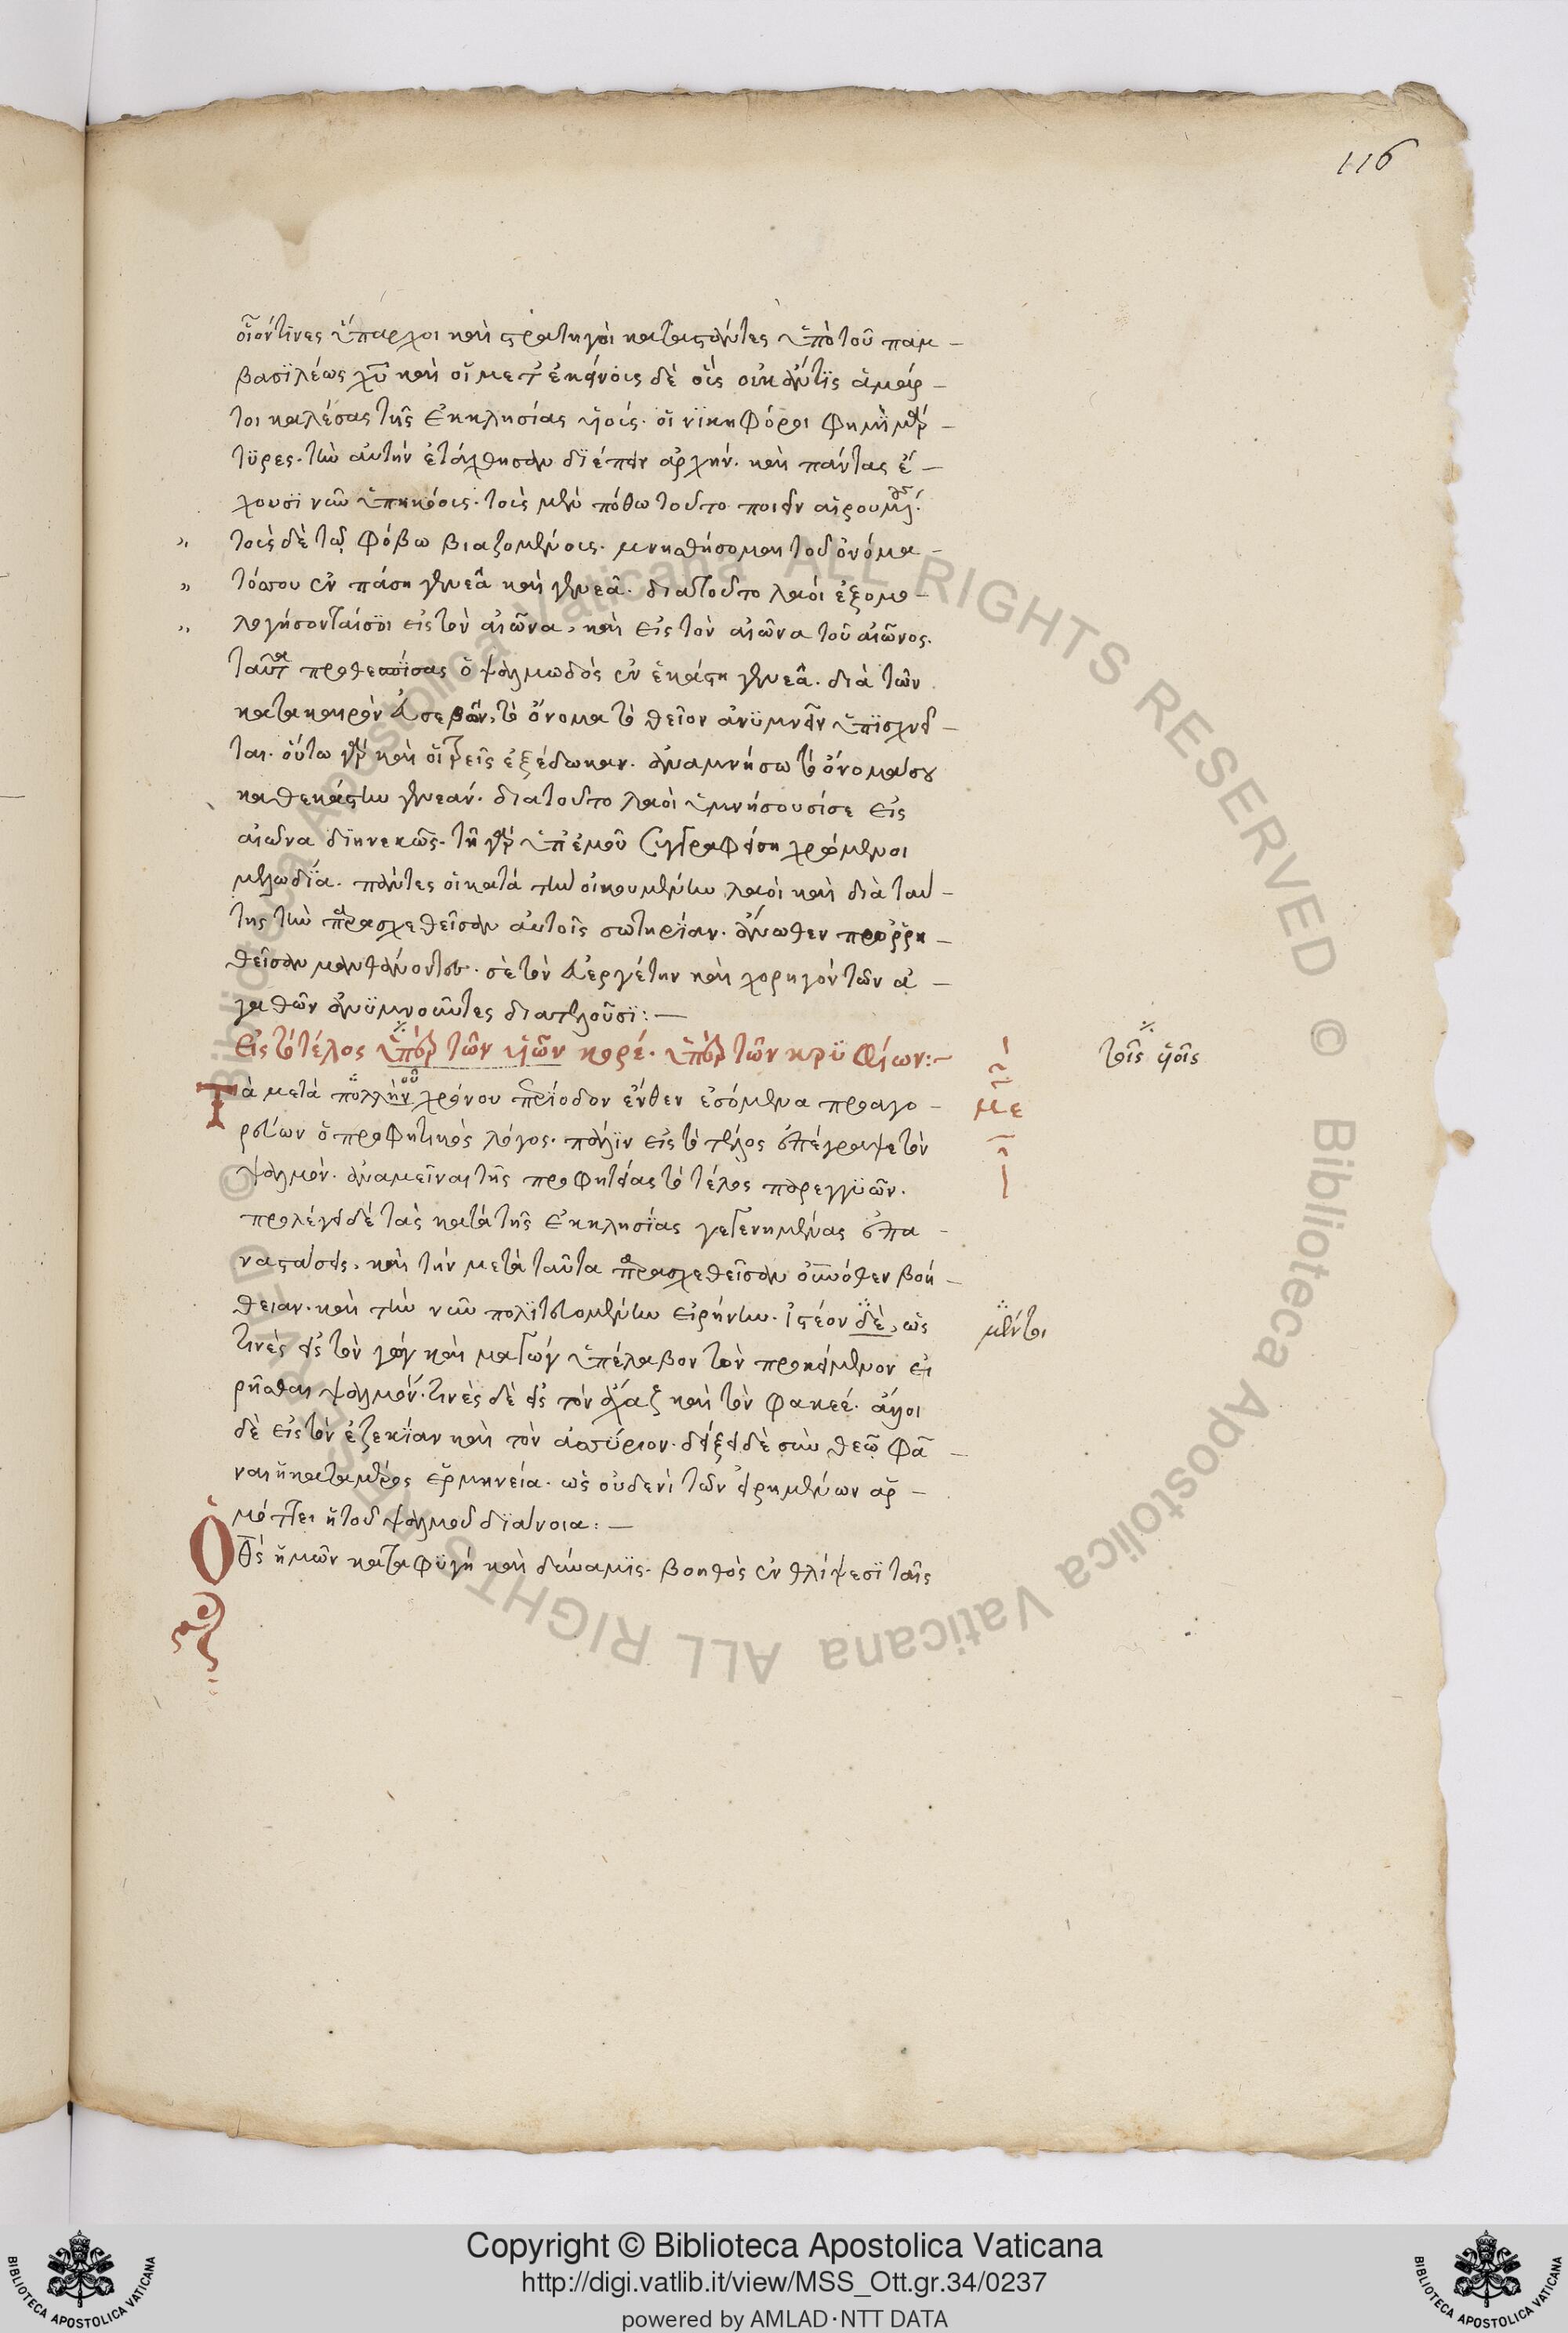 116
οἷόν τινες ὕπαρχοι καὶ στρατηγοὶ κατασταθέντες ὑπὸ τοῦ παμ-
βασιλέως χυ καὶ οἱ μετ' ἐκείνοις δὲ
τοι καλέσας τῆς ἐκκλησίας υἱοί. οἱ νικηφόροι φημὶ μάρ-
τυρες. τὴν αὐτὴν ἐτάχθησαν διέπειν ἀρχήν. καὶ πάντας ἔ-
χουσι νῦν ὑπηκόοις. τοῖς μὲν πόθω τοῦτο ποιεῖν αἱρουμένοις.
" τοῖς δὲ τῷ φόβω βιαζομένοις. μνησθήσομαι τοῦ ὀνόμα-
" τός σου ἐν πάση γενεᾶ καὶ γενεᾶ. διατοῦτο λαοὶ ἐξομο-
" λογήσονταί σοι εἰς τὸν αἰῶνα, καὶ εἰς τὸν αἰῶνα τοῦ αἰῶνος.
ταῦτα προθεσπίσας ὁ ψαλμωδὸς ἐν ἑκάστη γενεᾶ. διὰ τῶν
κατακαιρὸν εὐσεβῶν, τὸ ὄνομα τὸ θεῖον ἀνυμνεῖν ὑπισχνεῖ-
ται. οὕτω γὰρ καὶ οἱ τρεῖς ἐξέδωκαν. ἀναμνήσω τὸ ὄνομά σου
καθεκάστην γενεάν. διατοῦτο λαοὶ ὑμνήσουσί σε εἰς
αἰῶνα διηνεκῶς. τῆ γὰρ ὑπ' ἐμοῦ συγγραφείση χρώμενοι
μελωδία. πάντες οἱ κατὰ τὴν οἰκουμένην λαοὶ καὶ διὰ ταύ-
της τὴν παρασχεθεῖσαν αὐτοῖς σωτηρίαν. ἄνωθεν προρρη-
θεῖσαν μανθάνοντες. σὲ τὸν εὐεργέτην καὶ χορηγὸν τῶν ἀ-
γαθῶν ἀνυμνοῦντες διατελοῦσι:-
εἰς τὸ τέλος ὑπὲρ τῶν υἱῶν κορέ. ὑπὲρ τῶν κρυφίων:-
τοῖς υἱοῖς
με
Τὰ μετὰ πολλὴν χρόνου περίοδον ἔνθεν ἐσόμενα προαγο-
ρεύων ὁ προφητικὸς λόγος. πάλιν εἰς τὸ τέλος ἐπέγραψε τὸν
ψαλμόν. ἀναμεῖναι τῆς προφητείας τὸ τέλος παρεγγυῶν.
προλέγει δὲ τὰς κατὰ τῆς ἐκκλησίας γεγενημένας ἐπα-
ναστάσεις, καὶ τὴν μετὰ ταῦτα παρασχεθεῖσαν οὐνόθεν βοή-
θειαν. καὶ τὴν νῦν πολιτευομένην εἰρήνην. ἰστέον δὲ, ὡς
μέντοι
τινὲς εἰς τὸν γὼγ καὶ μαγὼγ ὑπέλαβον τὸν προκείμενον εἰ
ρῆσθαι ψαλμόν. τινὲς δὲ εἰς τὸν ἄχαζ καὶ τὸν φακεέ. ἄλλοι
δὲ εἰς τὸν ἐζεκίαν καὶ τὸν ἀσσύριον. δείξει δὲ σὺν θεῷ φά-
ναι ἡ καταμέρος ἑρμηνεία. ὡς οὐδενὶ τῶν εἰρημένων ἁρ-
μόττει ἡ τοῦ ψαλμοῦ διάνοια:-
Ὁ θς ἡμῶν καταφυγὴ καὶ δύναμις. βοηθὸς ἐν θλίψεσι ταῖς
© Biblioteca Apostolica Vaticana ALL RIGHTS RESERVED © Biblioteca Apostolica Vaticana ALL RIGHTS RESERVED
BIBLIOTECA APOSTOLICA VATICANA
Copyright © Biblioteca Apostolica Vaticana
http://digi.vatlib.it/view/MSS_Ott.gr.34/0237
powered by AMLAD·NTT DATA
BIBLIOTECA APOSTOLICA VATICANA